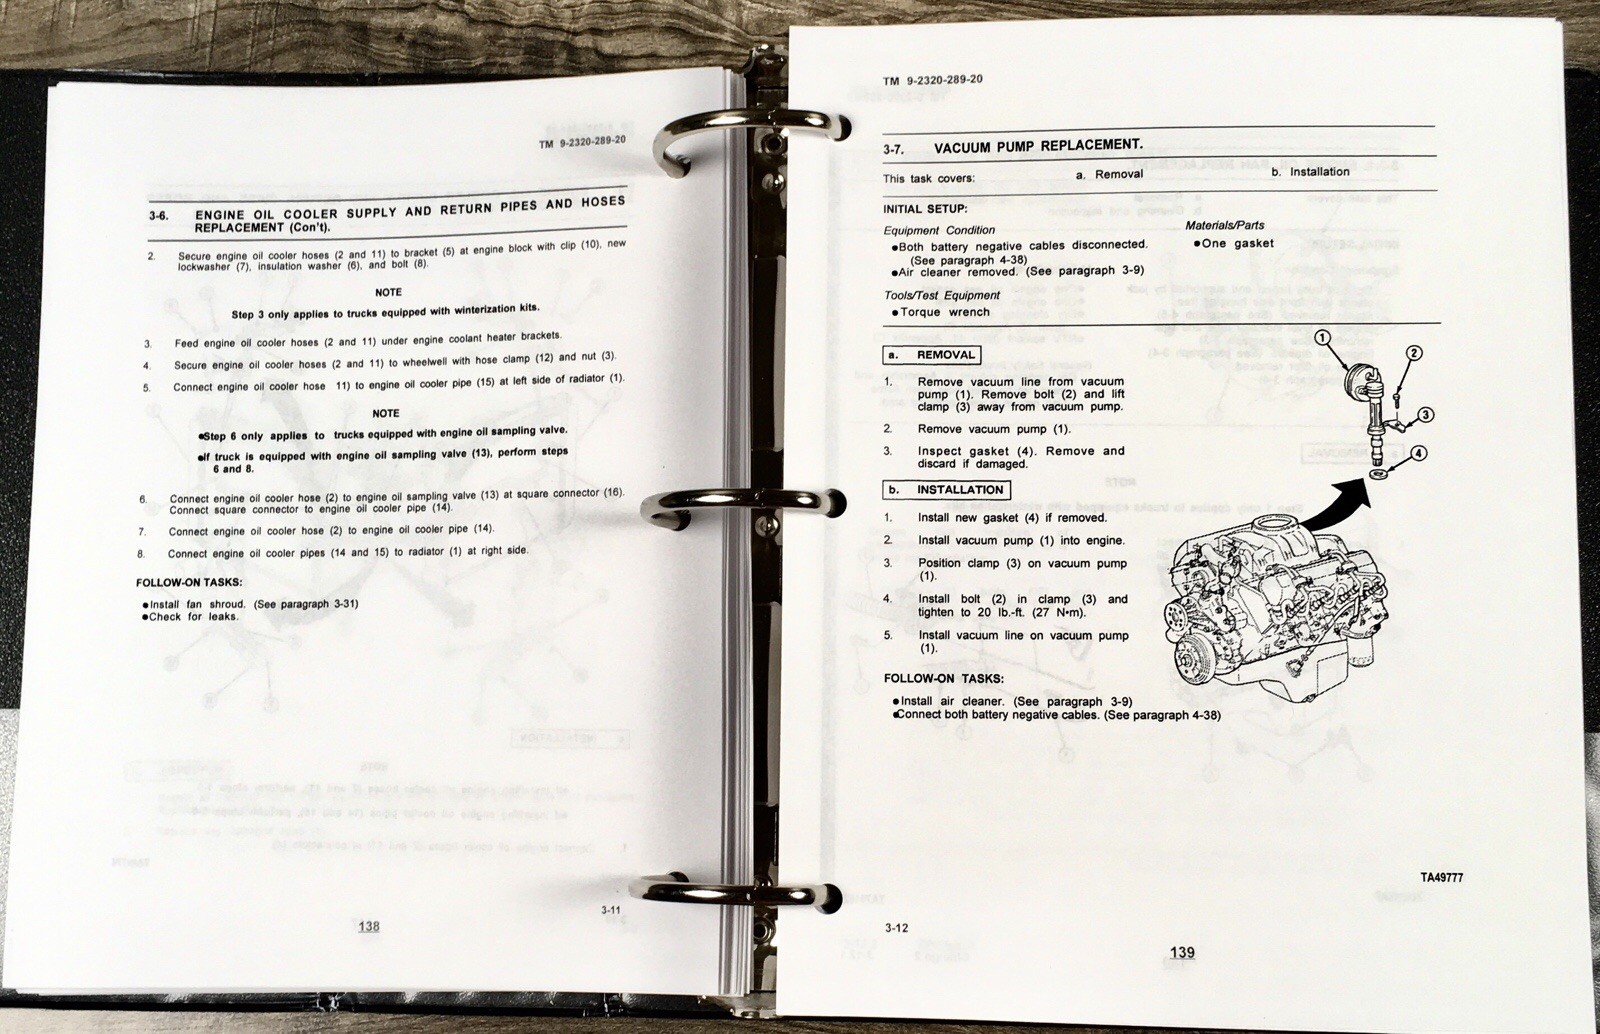 TM 9-2320-289-20
3-6. ENGINE OIL COOLER SUPPLY AND RETURN PIPES AND HOSES
REPLACEMENT (Con't).
2. Secure engine oil cooler hoses (2 and 11) to bracket (5) at engine block with clip (10), new
lockwasher (7), insulation washer (6), and bolt (8).
NOTE
Step 3 only applies to trucks equipped with winterization kits.
3. Feed engine oil cooler hoses (2 and 11) under engine coolant heater brackets.
4. Secure engine oil cooler hoses (2 and 11) to wheelwell with hose clamp (12) and nut (3).
5. Connect engine oil cooler hose 11) to engine oil cooler pipe (15) at left side of radiator (1).
NOTE
●Step 6 only applies to trucks equipped with engine oil sampling valve.
●If truck is equipped with engine oil sampling valve (13), perform steps
6 and 8.
6. Connect engine oil cooler hose (2) to engine oil sampling valve (13) at square connector (16).
Connect square connector to engine oil cooler pipe (14).
7. Connect engine oil cooler hose (2) to engine oil cooler pipe (14).
8. Connect engine oil cooler pipes (14 and 15) to radiator (1) at right side.
FOLLOW-ON TASKS:
●Install fan shroud. (See paragraph 3-31)
●Check for leaks.
3-11
138
TM 9-2320-289-20
3-7. VACUUM PUMP REPLACEMENT.
This task covers: a. Removal b. Installation
INITIAL SETUP:
Equipment Condition
●Both battery negative cables disconnected.
(See paragraph 4-38)
●Air cleaner removed. (See paragraph 3-9)
Materials/Parts
●One gasket
Tools/Test Equipment
●Torque wrench
a. REMOVAL
1. Remove vacuum line from vacuum
pump (1). Remove bolt (2) and lift
clamp (3) away from vacuum pump.
2. Remove vacuum pump (1).
3. Inspect gasket (4). Remove and
discard if damaged.
b. INSTALLATION
1. Install new gasket (4) if removed.
2. Install vacuum pump (1) into engine.
3. Position clamp (3) on vacuum pump
(1).
4. Install bolt (2) in clamp (3) and
tighten to 20 lb.-ft. (27 N•m).
5. Install vacuum line on vacuum pump
(1).
1
2
3
4
FOLLOW-ON TASKS:
●Install air cleaner. (See paragraph 3-9)
●Connect both battery negative cables. (See paragraph 4-38)
TA49777
3-12
139